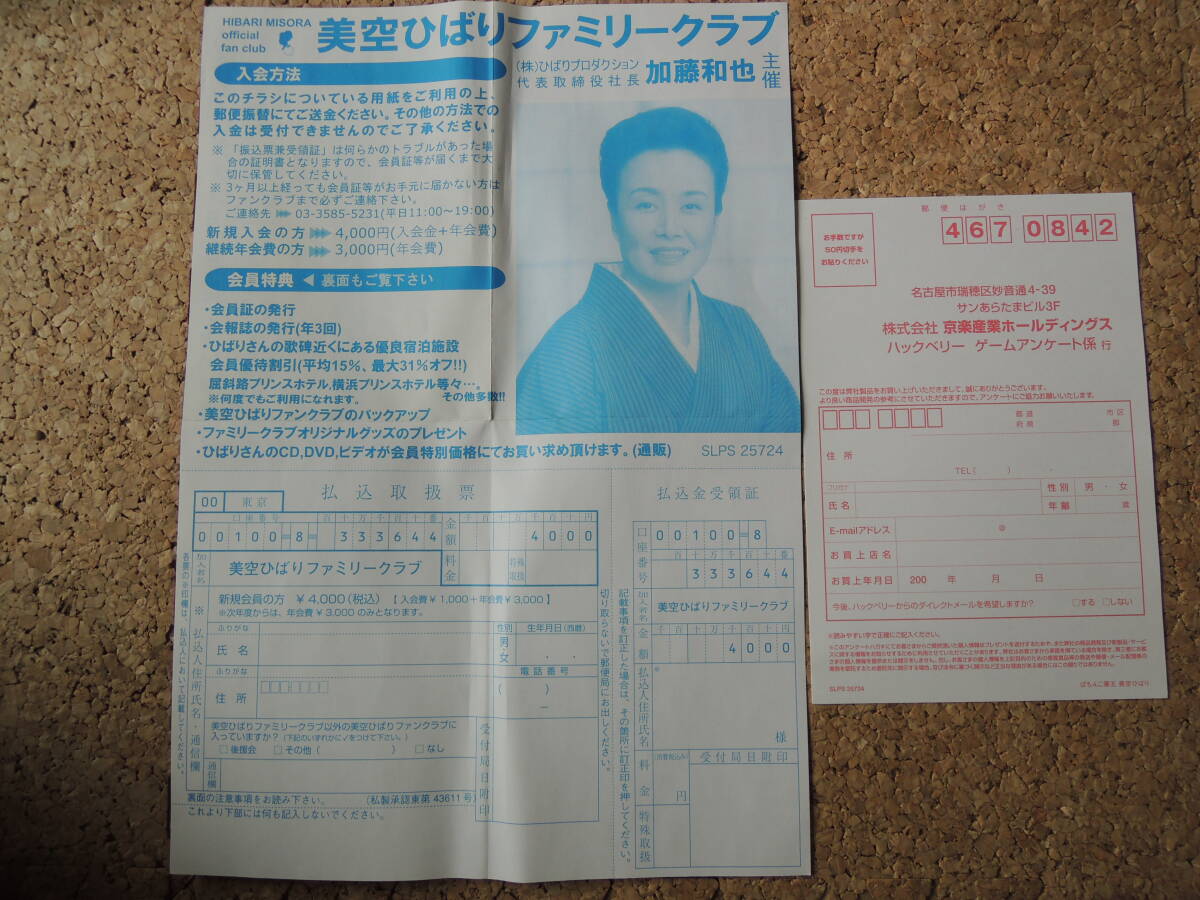 HIBARI MISORA
official
fan club
美空ひばりファミリークラブ
(株)ひばりプロダクション
代表取締役社長 加藤和也 主催
入会方法
このチラシについている用紙をご利用の上、
郵便振替にてご送金ください。その他の方法での
入会は受付できませんのでご了承ください。
※「振込票兼受領証」は何らかのトラブルがあった場
合の証明書となりますので、会員証等が届くまで大
切に保管してください。
※3ヶ月以上経っても会員証等がお手元に届かない方は
ファンクラブまで必ずご連絡下さい。
ご連絡先 03-3585-5231(平日11:00〜19:00)
新規入会の方 4,000円(入会金+年会費)
継続年会費の方 3,000円(年会費)
会員特典 ◀ 裏面もご覧下さい
・会員証の発行
・会報誌の発行(年3回)
・ひばりさんの歌碑近くにある優良宿泊施設
会員優待割引(平均15%、最大31%オフ!!)
屈斜路プリンスホテル,横浜プリンスホテル等々…。
※何度でもご利用になれます。 その他多数!!
・美空ひばりファンクラブのバックアップ
・ファミリークラブオリジナルグッズのプレゼント
・ひばりさんのCD,DVD,ビデオが会員特別価格にてお買い求め頂けます。(通販)
SLPS 25724
払込取扱票
00 東京
口座番号 百十万千百十番
00100=8= 333644
金額 千百十万千百十円
4000
加入者名 美空ひばりファミリークラブ
料金 特殊取扱
新規会員の方 ¥4,000(税込)【入会費¥1,000+年会費¥3,000】
※次年度からは、年会費¥3,000のみとなります。
ふりがな
氏名
性別 男・女
生年月日(西暦)
ふりがな
住所
電話番号
( )
−
美空ひばりファミリークラブ以外の美空ひばりファンクラブに
入っていますか?(下記のいずれかに✓をつけて下さい。)
□後援会 □その他( ) □なし
通信欄
受付局日附印
各票の※印欄は、払込人において記載してください。
※払込人住所氏名・通信欄
裏面の注意事項をお読み下さい。 (私製承認東第 43611 号)
これより下部には何も記入しないでください。
切り取らないで郵便局にお出しください。
記載事項を訂正した場合は、その箇所に訂正印を押してください。
払込金受領証
口座番号
00100=8
百十万千百十番
333644
加入者名 美空ひばりファミリークラブ
金額 千百十万千百十円
4000
払込人住所氏名
※
様
料金 (消費税込み)
円
特殊取扱
受付局日附印
郵便はがき
お手数ですが
50円切手を
お貼りください
467 0842
名古屋市瑞穂区妙音通4-39
サンあらたまビル3F
株式会社 京楽産業ホールディングス
ハックベリー ゲームアンケート係 行
この度は弊社製品をお買い上げいただきまして、誠にありがとうございます。
より良い商品開発の参考にさせていただきますので、アンケートにご協力お願いいたします。
都道府県 市区郡
住所
TEL( ) -
フリガナ
氏名
性別 男・女
年齢 歳
E-mailアドレス @
お買上店名
お買上年月日 200 年 月 日
今後、ハックベリーからのダイレクトメールを希望しますか? □する □しない
※読みやすい字で正確にご記入ください。
SLPS 25724
ぱちんこ華王 美空ひばり